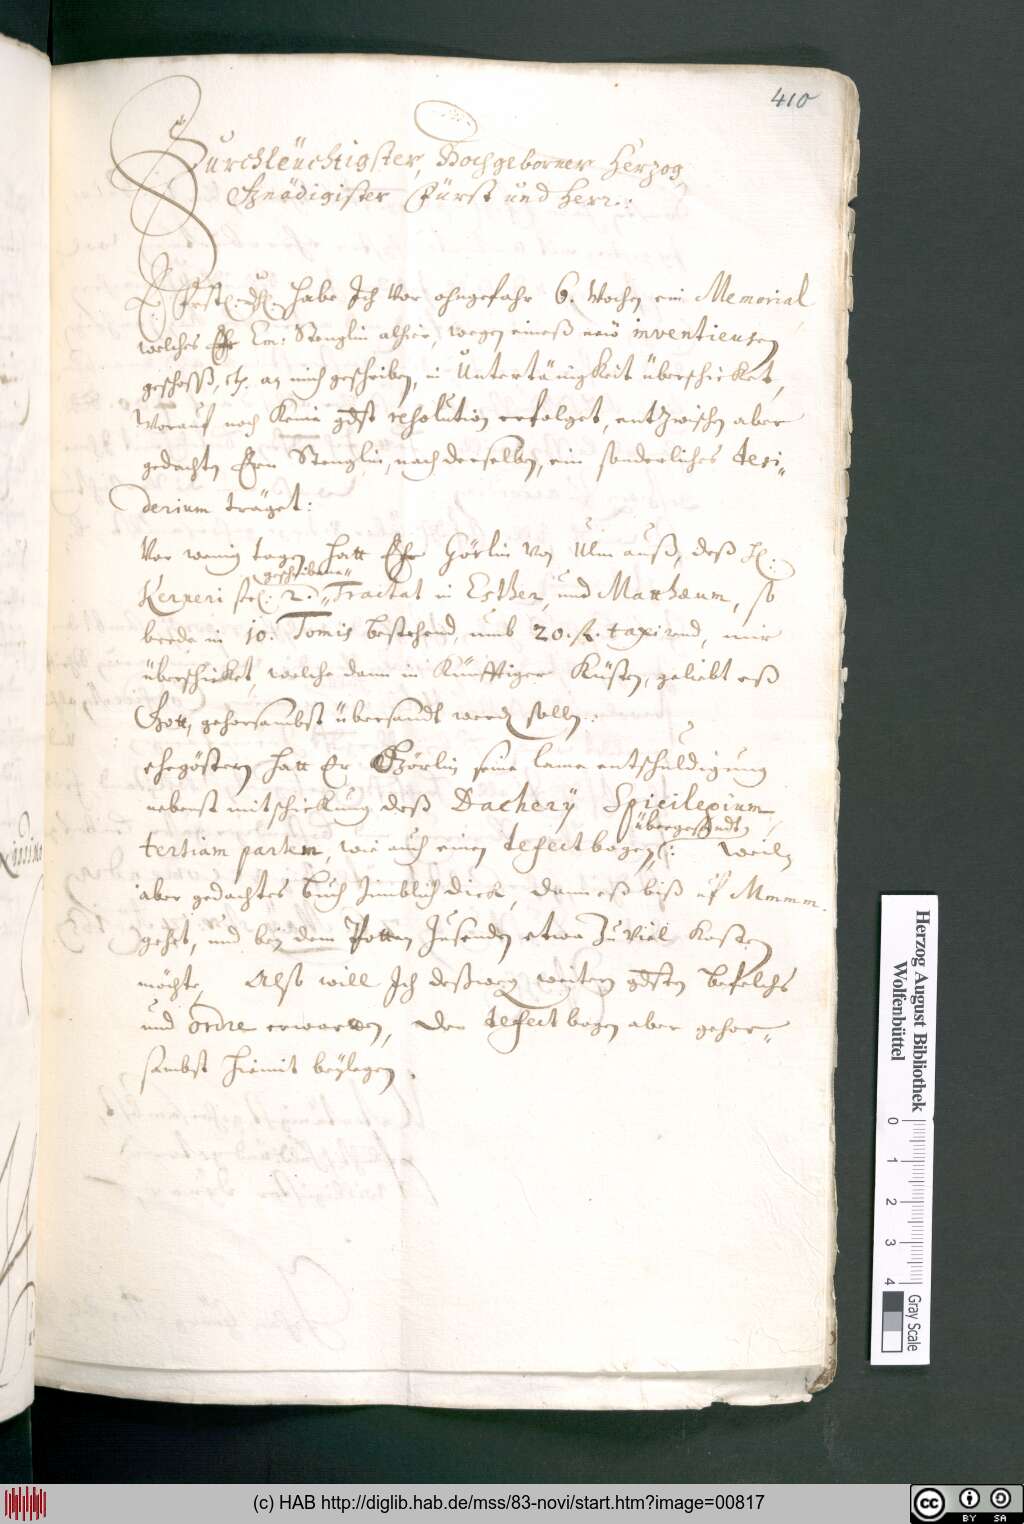 410
Durchleüchtigster, Hochgeborner Herzog,
Gnädigister Fürst und Herr.:
E: Fürstl. Dl. habe Ich vor ohngefahr 6. Wochen ein Memorial
welches Hr Em: Stenglin alhier, wegen eineß neü inventieusen
geschosß, etc. an mich geschriben, in Untertänigkeit überschicket,
Worauf noch Keine gdst resolution erfolget, entzwischen aber
gedachter Herr Stenglin, nach derselben, ein sonderliches desi„
derium träget:
Vor wenig tagen hatt Hr Görlin von Ulm auß, deß H:
Kerneri seel: 2. „geschribene„ Tractat in Esther, und Matthæum, so
beede in 10. Tomis bestehend, umb 20. fl. taxirend, mir
überschicket, welche dann in Künfftiger Küsten, geliebt eß
Gott, gehorsambst übersandt werden sollen.:
ehegöstern hatt Er Görlin seine lame entschuldigung
nebenst mitschickung deß Dachery Spicilegium
tertiam partem, wie auch einen defect bogen „übergesendt„: Weiln
aber gedachtes buch zimblich dick, dann eß biß uf Mmmm.
gehet, und bey dem Potten Zusenden etwa Zu viel Kosten
möchte, Alß will Ich deßweg weitern gdsten befelchs
und ordre erwarten, Den defect bogen aber gehor„
sambst hiemit beylegen.
Herzog August Bibliothek
Wolfenbüttel
0 1 2 3 4
Gray Scale
(c) HAB http://diglib.hab.de/mss/83-novi/start.htm?image=00817
cc BY SA